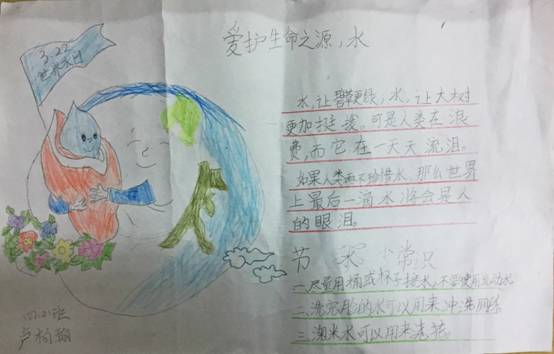 3.22
世界水日
爱护生命之源，水
水，让碧更绿，水，让大树
更加挺拔。可是人类在浪
费，而它在一天天流泪。
如果人类再不珍惜水，那么世界
上最后一滴水将会是人
的眼泪。
节水小常识
一.尽量用桶或杯子接水，不要使用流动水
二.洗完脸的水可以用来冲洗厕所
三.淘米水可以用来浇花。
四.2班
卢柏翰